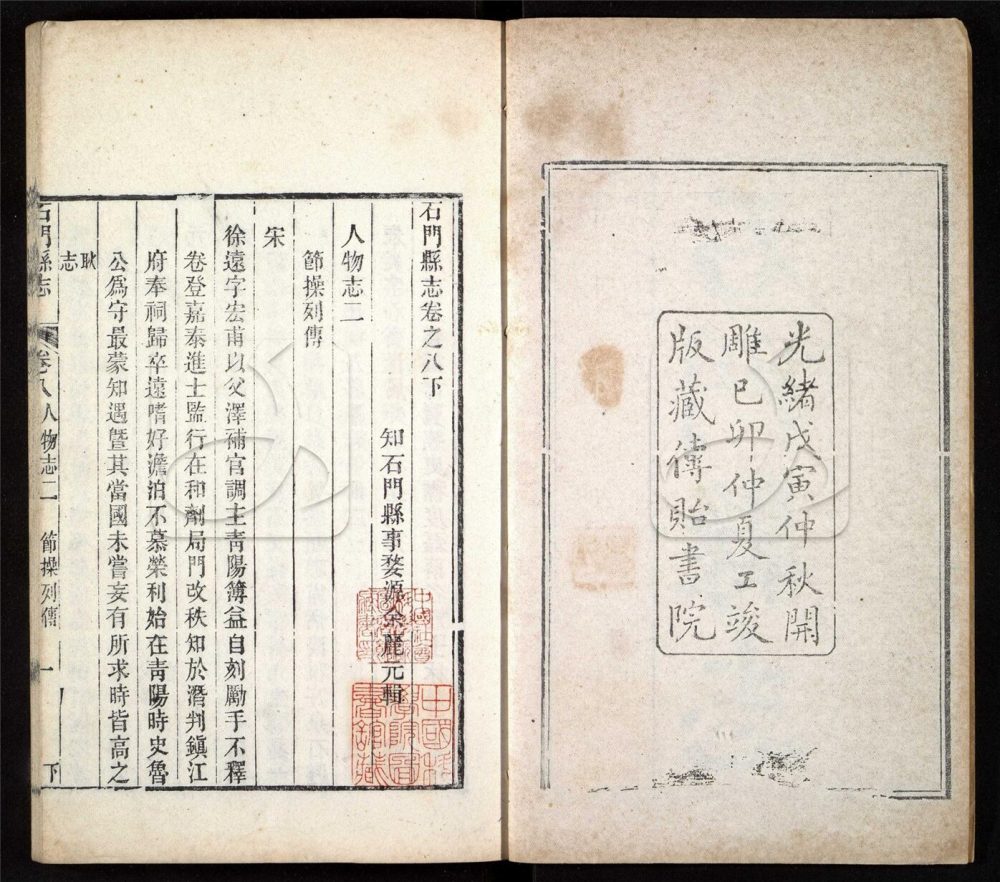 光緒戊寅仲秋開
雕己卯仲夏工竣
版藏傳貽書院
石門縣志卷之八下
知石門縣事婺源余麗元輯
人物志二
節操列傳
宋
徐遠字宏甫以父澤補官調主靑陽簿益自刻勵手不釋
卷登嘉泰進士監行在和劑局門改秩知於潛判鎭江
府奉祠歸卒遠嗜好澹泊不慕榮利始在靑陽時史魯
公爲守最蒙知遇曁其當國未嘗妄有所求時皆高之
耿
志
石門縣志
卷八人物志二
節操列傳
一
下